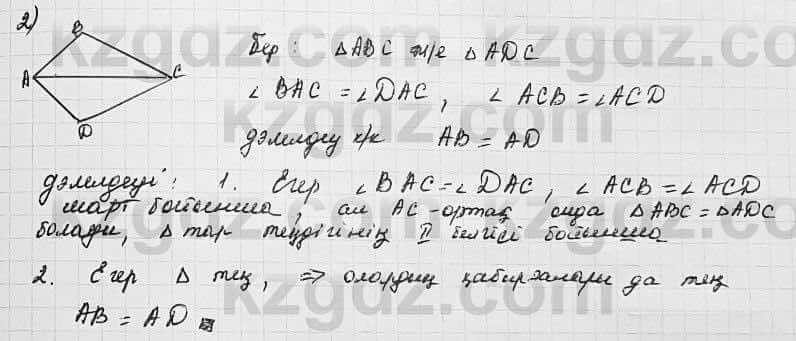 2)
B
A
C
D
Бер: △ABC ж/е △ADC
∠BAC = ∠DAC, ∠ACB = ∠ACD
дәлелдеу к/к AB = AD
дәлелдеуі: 1. Егер ∠BAC = ∠DAC, ∠ACB = ∠ACD
шарт бойынша, ал AC - ортақ, онда △ABC = △ADC
болады, △тар теңдігінің II белгісі бойынша
2. Егер △ тең, ⇒ олардың қабырғалары да тең
AB = AD
kzgdz.com